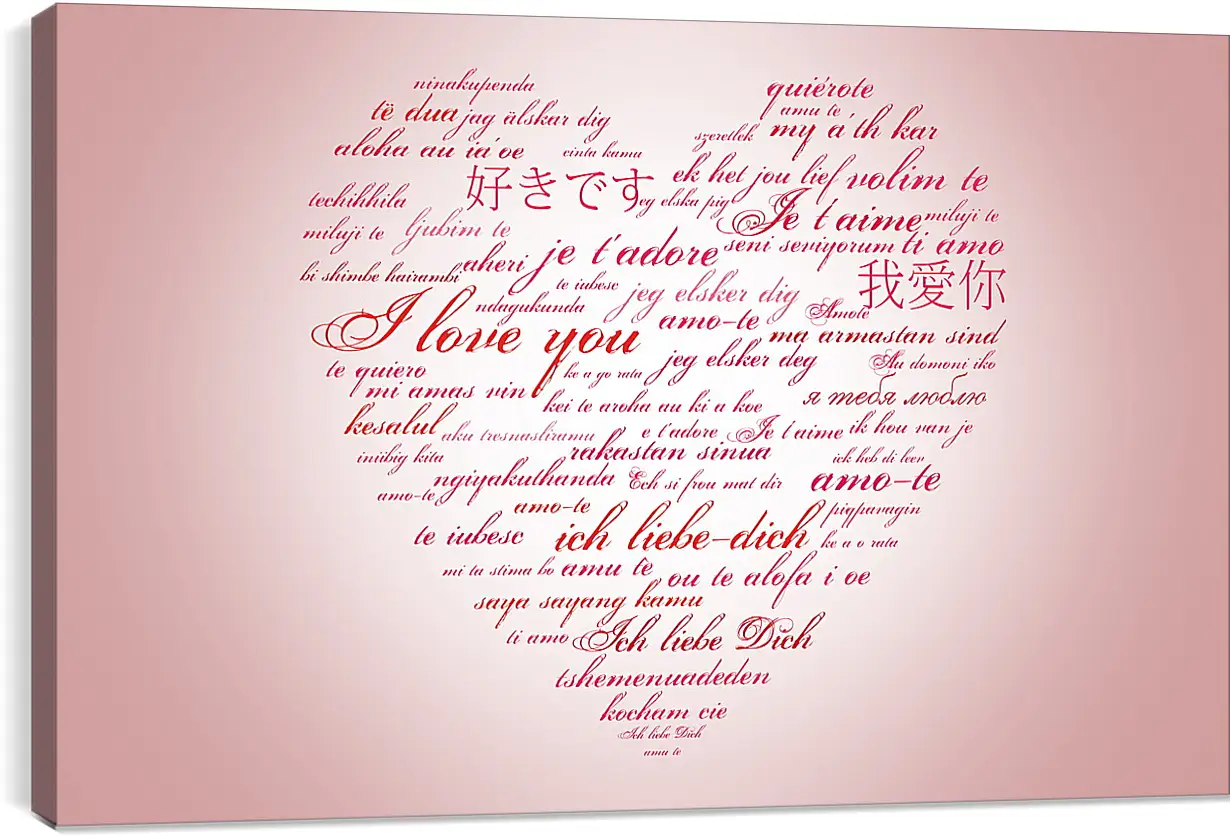 ninakupenda
quiérote
të dua jag älskar dig
amu të
szeretlek my a'th kar
aloha au ia'oe
cinta kamu
ek het jou lief volim te
techihhila
好きです
eg elska pig
Je t'aime miluji te
miluji te
ljubim te
je t'adore
seni seviyorum ti amo
bi shimbe hairambi
aheri
te iubesc
jeg elsker dig
我愛你
ndagukunda
amo-te
Amote
I love you
ma armastan sind
te quiero
ke a go rata
jeg elsker deg
Au domoni iko
mi amas vin
kei te aroha au ki a koe
я тебя люблю
kesalul
aku tresnasliramu
e t'adore
Je t'aime
ik hou van je
iniibig kita
rakastan sinua
ick heb di leev
amo-te
ngiyakuthanda
Ech si frou mat dir
amo-te
amo-te
pigpavagin
te iubesc
ich liebe-dich
ke a o rata
mi ta stima bo
amu të
ou te alofa i oe
saya sayang kamu
ti amo
Ich liebe Dich
tshemenuadeden
kocham cie
Ich liebe Dich
amu te